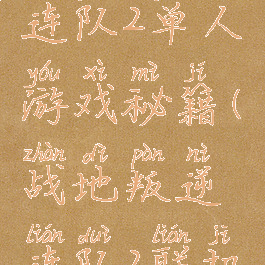 连队2单人
yóu xì mì jí
游戏秘籍(
zhàn dì pàn nì
战地叛逆
lián duì lián jī
连队2联机